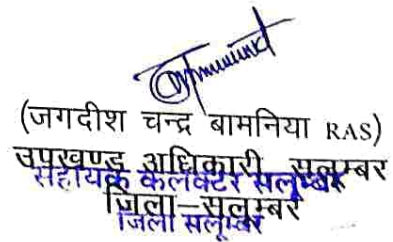 (जगदीश चन्द्र बामनिया RAS)
उपखण्ड अधिकारी सलूम्बर
सहायक कलेक्टर सलूम्बर
जिला-सलूम्बर
जिला सलूम्बर